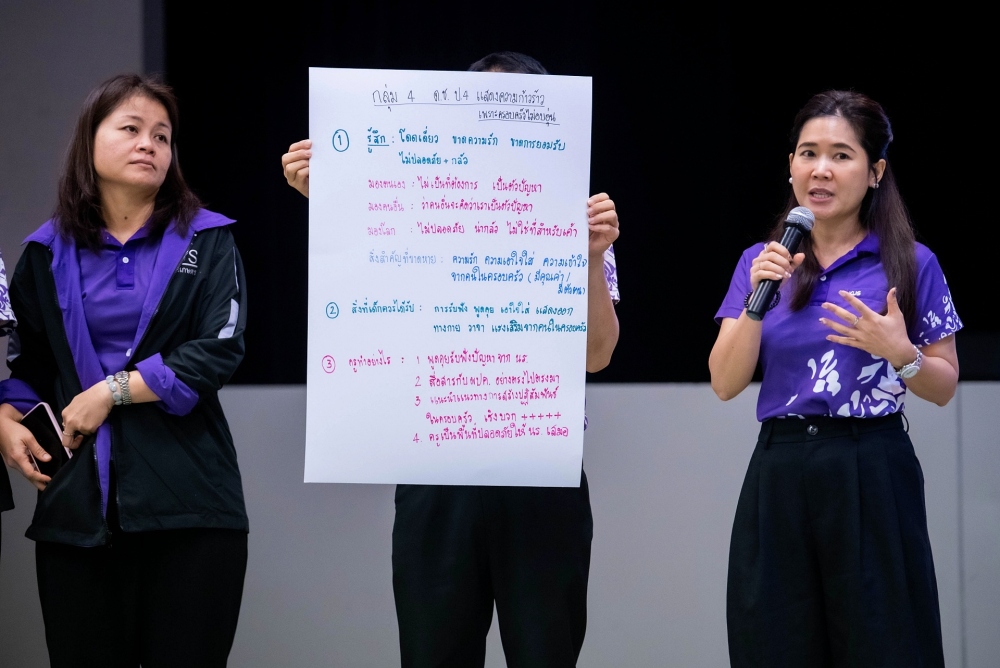 กลุ่ม 4 ด.ช. ป.4 แสดงความก้าวร้าว
เพราะครอบครัวไม่อบอุ่น
① รู้สึก : โดดเดี่ยว ขาดความรัก ขาดการยอมรับ
ไม่ปลอดภัย + กลัว
มองตนเอง : ไม่เป็นที่ต้องการ เป็นตัวปัญหา
มองคนอื่น : ว่าคนอื่นจะคิดว่าเราเป็นตัวปัญหา
มองโลก : ไม่ปลอดภัย น่ากลัว ไม่ใช่ที่สำหรับเค้า
สิ่งสำคัญที่ขาดหาย : ความรัก ความเอาใจใส่ ความเข้าใจ
จากคนในครอบครัว (มีคุณค่า/
มีตัวตน
② สิ่งที่เด็กควรได้รับ : การรับฟัง พูดคุย เอาใจใส่ แสดงออก
ทางกาย วาจา แรงเสริมจากคนในครอบครัว
③ ครูทำอย่างไร : 1 พูดคุยรับฟังปัญหาจาก นร.
2 สื่อสารกับ ผปค. อย่างตรงไปตรงมา
3 แนะนำแนวทางการสร้างปฏิสัมพันธ์
ในครอบครัว เชิงบวก +++++
4. ครูเป็นพื้นที่ปลอดภัยให้ นร. เสมอ